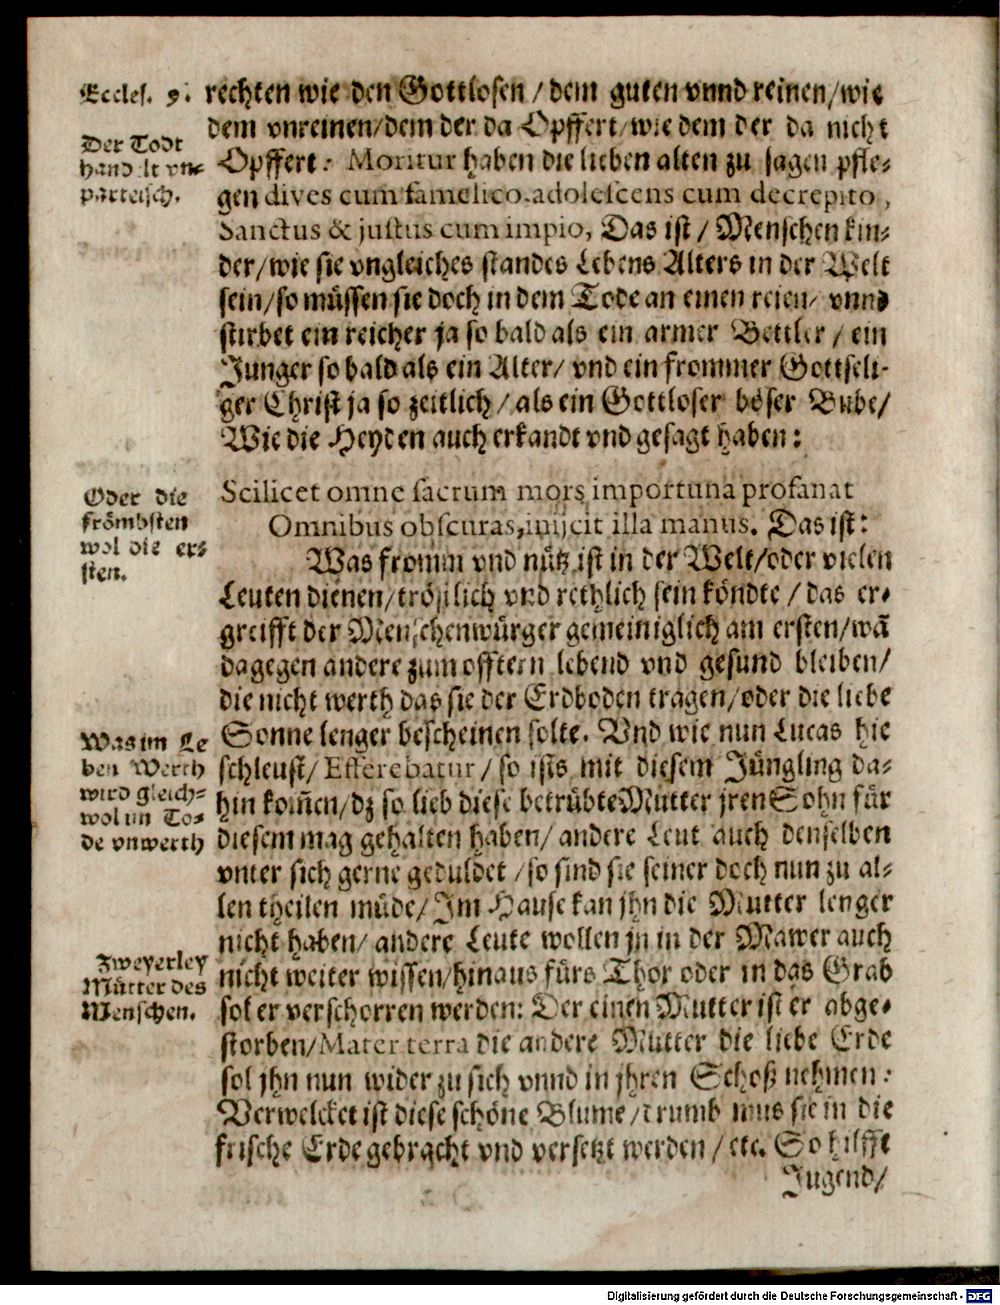 Eccles. 9.
Der Todt
handelt vn-
parteisch.
rechten wie den Gottlosen / dem guten vnnd reinen/wie
dem vnreinen/dem der da Opffert/wie dem der da nicht
Opffert: Moritur haben die lieben alten zu sagen pfle-
gen dives cum famelico, adolescens cum decrepito,
Sanctus & justus cum impio, Das ist / Menschen kin-
der/wie sie vngleiches standes Lebens Alters in der Welt
sein/so müssen sie doch in dem Tode an einen reien/ vnnd
stirbet ein reicher ja so bald als ein armer Bettler / ein
Junger so bald als ein Alter/ vnd ein frommer Gottseli-
ger Christ ja so zeitlich / als ein Gottloser böser Bube/
Wie die Heyden auch erkandt vnd gesagt haben:
Oder die
frömbsten
wol die er-
sten.
Scilicet omne sacrum mors importuna profanat
Omnibus obscuras, injicit illa manus. Das ist:
Was fromm vnd nütz ist in der Welt/oder vielen
Leuten dienen/tröstlich vnd rethlich sein köndte / das er-
greifft der Menschenwürger gemeiniglich am ersten/wã
dagegen andere zum offtern lebend vnd gesund bleiben/
die nicht werth das sie der Erdboden tragen/oder die liebe
Sonne lenger bescheinen solte. Vnd wie nun Lucas hie
schleust/ Efferebatur / so ists mit diesem Jüngling da-
hin kom̃en/dz so lieb diese betrübte Mutter jren Sohn für
diesem mag gehalten haben/ andere Leut auch denselben
vnter sich gerne geduldet /so sind sie seiner doch nun zu al-
len theilen müde/ Im Hause kan jhn die Mutter lenger
nicht haben/ andere Leute wollen jn in der Mawer auch
nicht weiter wissen/hinaus fürs Thor oder in das Grab
sol er verschorren werden: Der einen Mutter ist er abge-
storben/Mater terra die andere Mutter die liebe Erde
sol jhn nun wider zu sich vnnd in jhren Schoß nehmen:
Verwelcket ist diese schöne Blume /drumb mus sie in die
frische Erde gebracht vnd versetzt werden / etc. So hilfft
Jugend/
Was im Le
ben Werth
wird gleich-
wol im To-
de vnwerth
Zweyerley
Mütter des
Menschen.
Digitalisierung gefördert durch die Deutsche Forschungsgemeinschaft - DFG